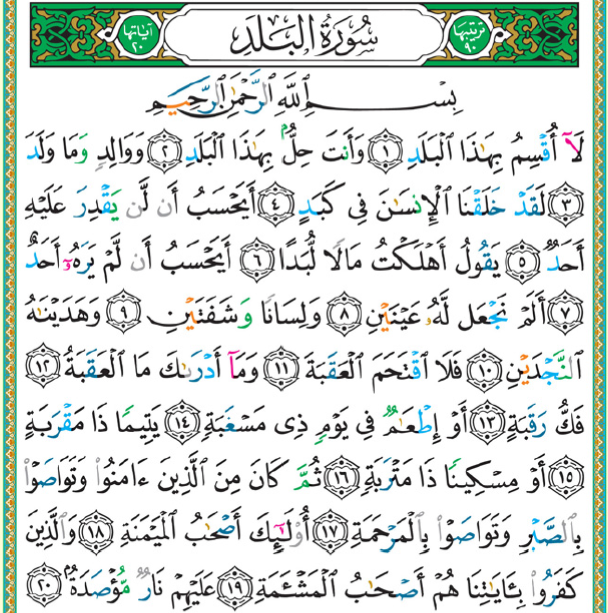 ترتيبها ٩٠ سُورَةُ البَلَدِ آياتها ٢٠
بِسْمِ اللَّهِ الرَّحْمَٰنِ الرَّحِيمِ
لَآ أُقْسِمُ بِهَٰذَا الْبَلَدِ ١ وَأَنتَ حِلٌّۢ بِهَٰذَا الْبَلَدِ ٢ وَوَالِدٍ وَمَا وَلَدَ
٣ لَقَدْ خَلَقْنَا الْإِنسَٰنَ فِي كَبَدٍ ٤ أَيَحْسَبُ أَن لَّن يَقْدِرَ عَلَيْهِ
أَحَدٌ ٥ يَقُولُ أَهْلَكْتُ مَالًا لُّبَدًا ٦ أَيَحْسَبُ أَن لَّمْ يَرَهُۥٓ أَحَدٌ
٧ أَلَمْ نَجْعَل لَّهُۥ عَيْنَيْنِ ٨ وَلِسَانًا وَشَفَتَيْنِ ٩ وَهَدَيْنَٰهُ
النَّجْدَيْنِ ١٠ فَلَا اقْتَحَمَ الْعَقَبَةَ ١١ وَمَآ أَدْرَىٰكَ مَا الْعَقَبَةُ ١٢
فَكُّ رَقَبَةٍ ١٣ أَوْ إِطْعَٰمٌ فِي يَوْمٍ ذِي مَسْغَبَةٍ ١٤ يَتِيمًا ذَا مَقْرَبَةٍ
١٥ أَوْ مِسْكِينًا ذَا مَتْرَبَةٍ ١٦ ثُمَّ كَانَ مِنَ الَّذِينَ ءَامَنُوا وَتَوَاصَوْا
بِالصَّبْرِ وَتَوَاصَوْا بِالْمَرْحَمَةِ ١٧ أُوْلَٰٓئِكَ أَصْحَٰبُ الْمَيْمَنَةِ ١٨ وَالَّذِينَ
كَفَرُوا بِـَٔايَٰتِنَا هُمْ أَصْحَٰبُ الْمَشْـَٔمَةِ ١٩ عَلَيْهِمْ نَارٌ مُّؤْصَدَةٌۢ ٢٠